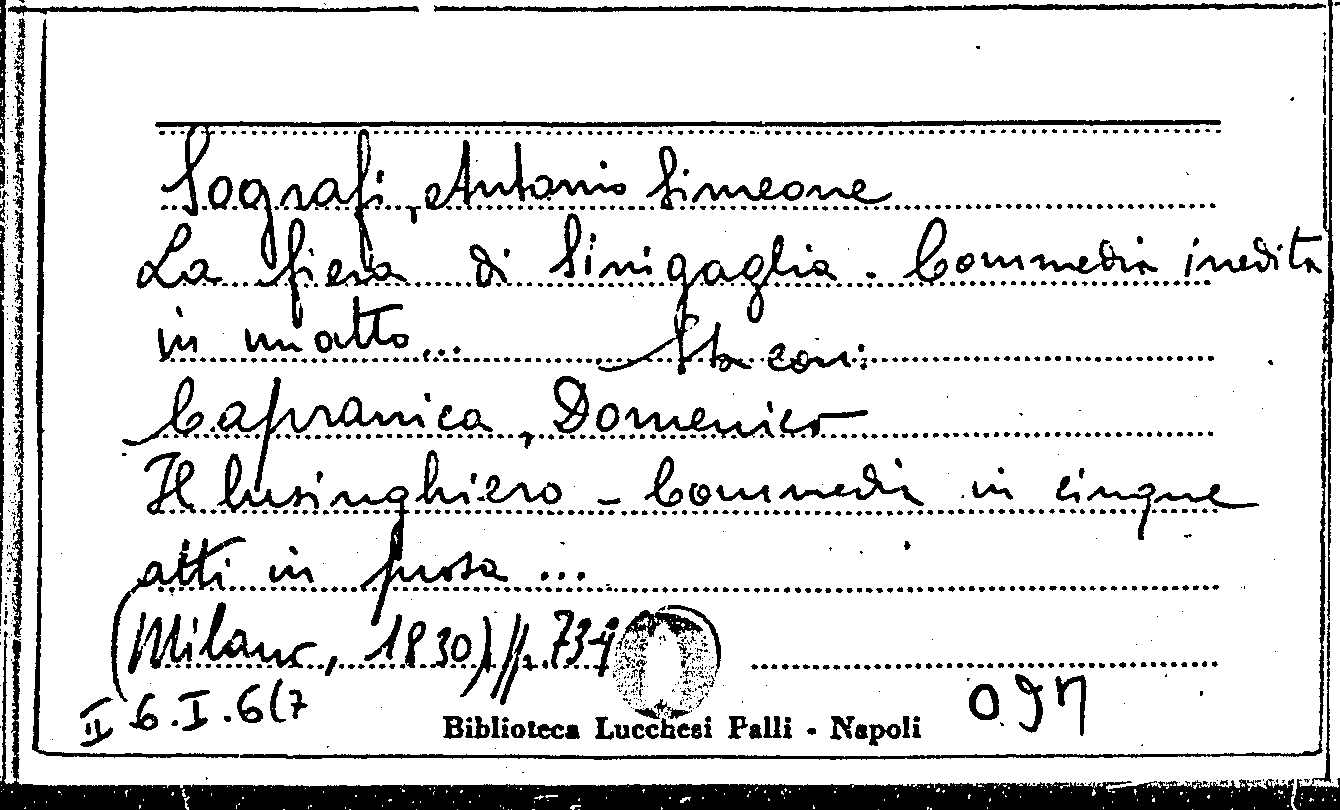 Sografi, Antonio Simeone
La fiera di Sinigaglia. Commedia inedita
in un atto... Sta con:
Capranica, Domenico
Il lusinghiero - Commedia in cinque
atti in prosa ...
(Milano, 1830) p. 73-
II 6.I.6(7
Biblioteca Lucchesi Palli - Napoli